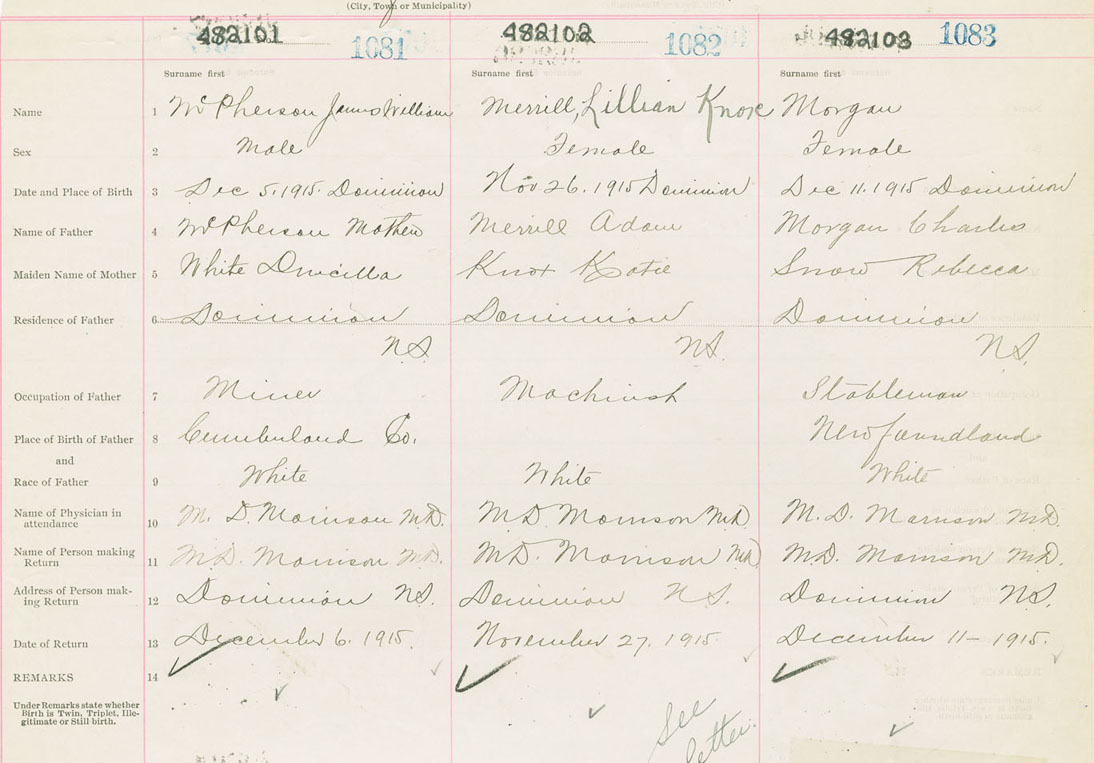 (City, Town or Municipality)
482101 1081 482102 1082 482103 1083
Surname first Surname first Surname first
Name 1 McPherson James William Merrill, Lillian Knox Morgan
Sex 2 Male Female Female
Date and Place of Birth 3 Dec 5. 1915. Dominion Nov 26. 1915 Dominion Dec 11. 1915 Dominion
Name of Father 4 McPherson Mathew Merrill Adam Morgan Charles
Maiden Name of Mother 5 White Drucilla Knox Katie Snow Rebecca
Residence of Father 6 Dominion Dominion Dominion
N.S. N.S. N.S.
Occupation of Father 7 Miner Machinist Stableman
Place of Birth of Father 8 Cumberland Co. Newfoundland
and
Race of Father 9 White White White
Name of Physician in
attendance 10 M. D. Morrison M.D. M.D. Morrison M.D. M. D. Morrison M.D.
Name of Person making
Return 11 M.D. Morrison M.D. M.D. Morrison M.D. M.D. Morrison M.D.
Address of Person mak-
ing Return 12 Dominion N.S. Dominion N.S. Dominion N.S.
Date of Return 13 December 6. 1915. November 27. 1915. December 11- 1915.
REMARKS 14
Under Remarks state whether
Birth is Twin, Triplet, Ille-
gitimate or Still birth.
See
letter.